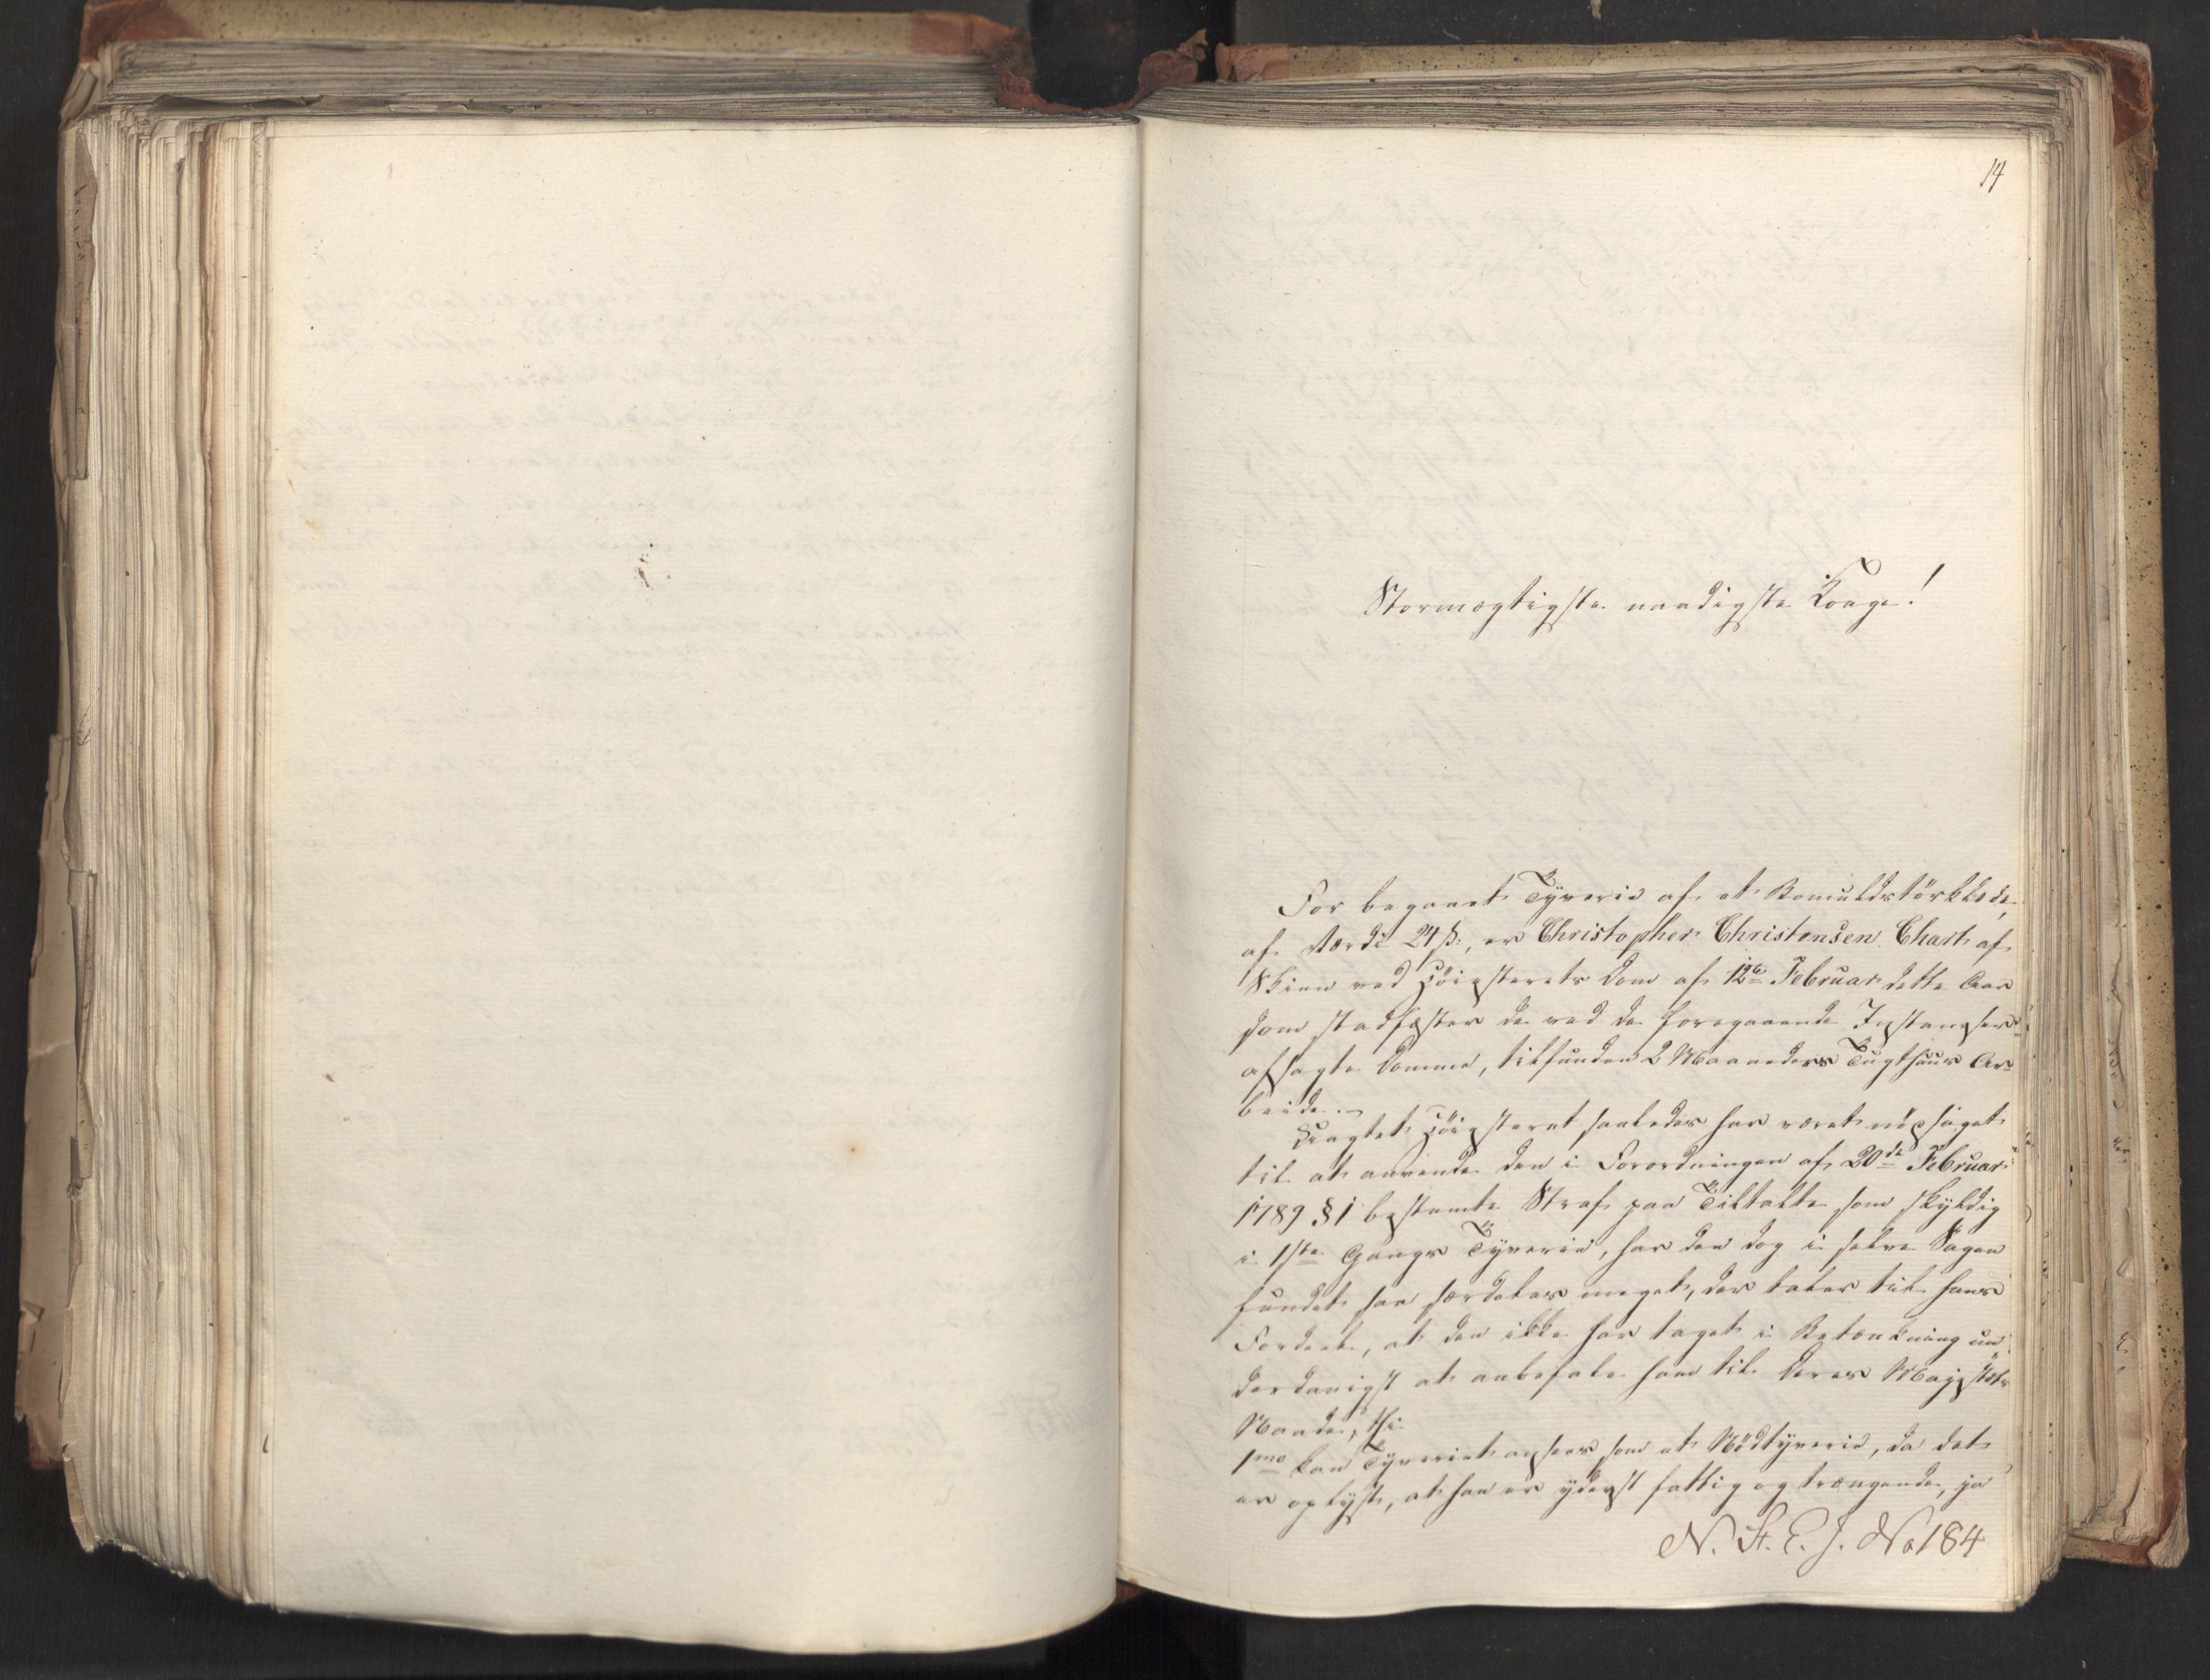 14
Stormægtigste naadigste Konge!
For begaaet Tyverie af et Bomuldstörklæde,
af Værdi 24 ß:, er Christopher Christensen Chart af
Skien ved Höiesterets Dom af 12te Februar dette Aar
som stadfæster de ved de foregaaende Instantser
afsagte Domme, tilfunden 2 Maaneders Tugthuus Ar-
beide.-
Uagtet Höiesteret saaledes har været nödsaget
til at anvende den i Forordningen af 20de Februar
1789 § 1 bestemte Straf paa Tiltalte som skyldig
i 1ste Gangs Tyverie, har den dog i selve Sagen
fundet saa særdeles meget, der taler til hans
Fordeel, at den ikke har taget i Betænkning un-
derdanigst at anbefale ham til Deres Majestæts
Naade, thi
1mo kan Tyveriet ansees som et Nödtyverie, da det
er oplyst, at han er yderst fattig og trængende, ja
N. St. E. J. No 184